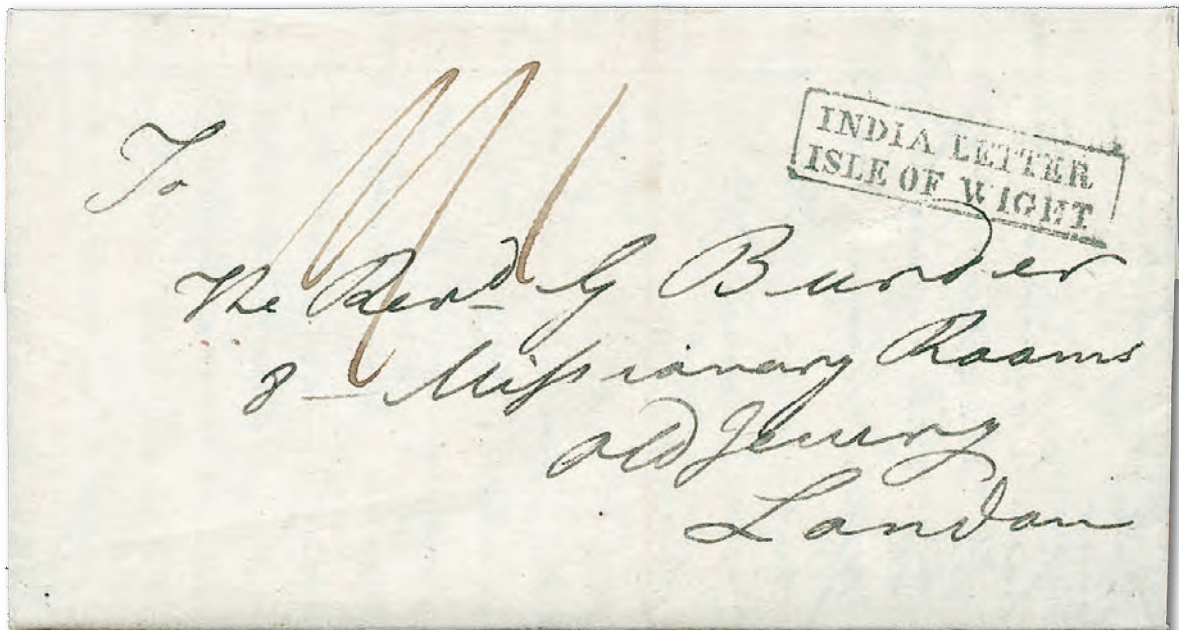 To
INDIA LETTER
ISLE OF WIGHT
The Revd G Burder
8 - Missionary Rooms
old Jewry
London